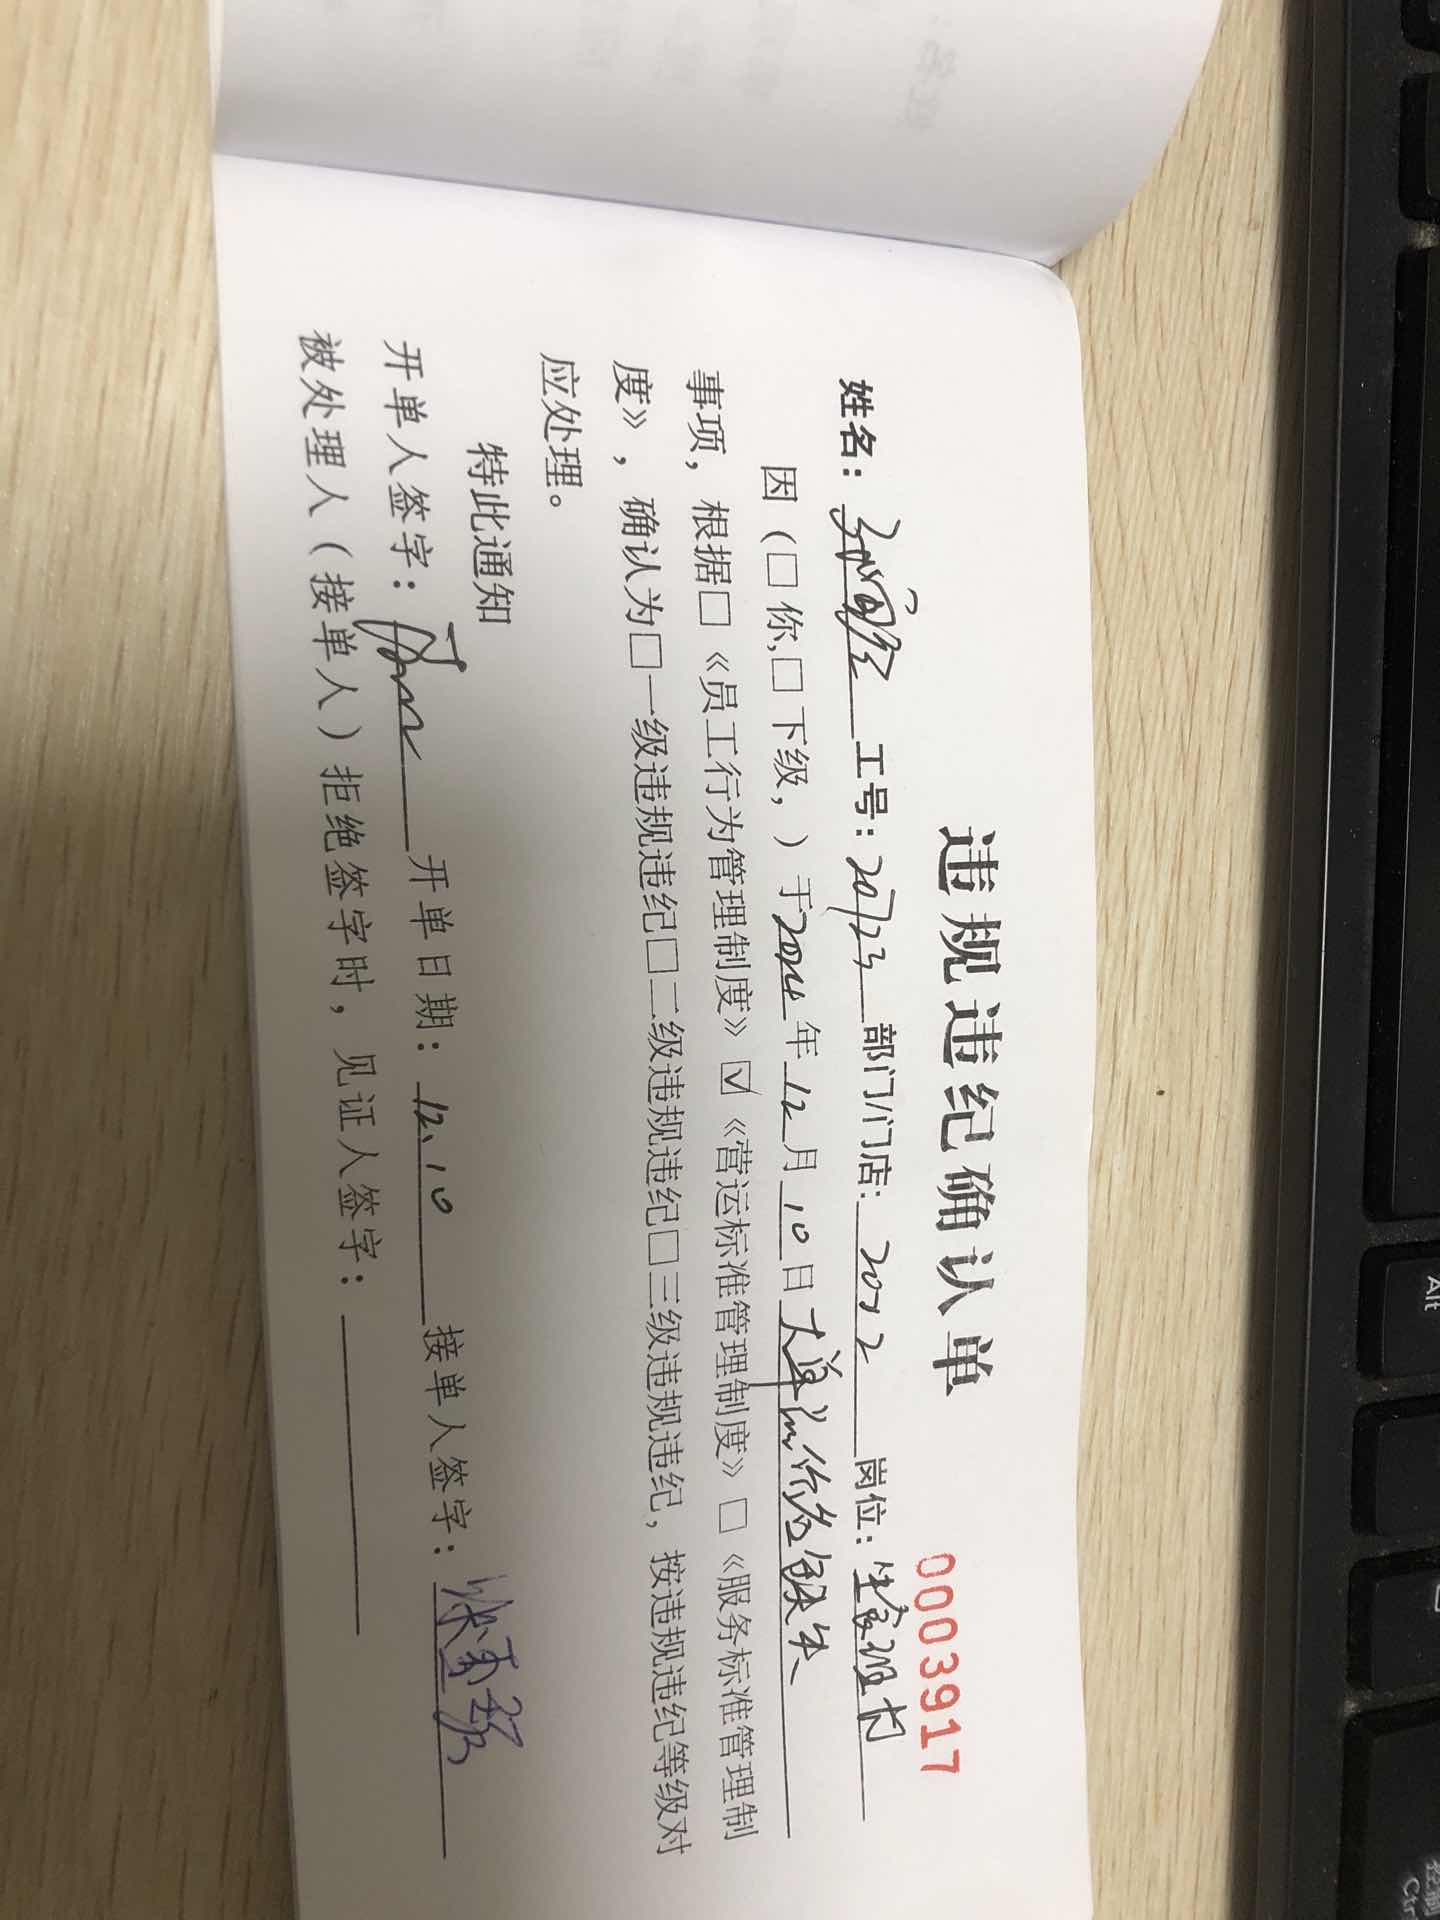 违规违纪确认单
0003917
姓名: 工号: 20723 部门/门店: 2022 岗位: 生鲜
因 (□ 你,□ 下级, ) 于 2024 年 12 月 10 日 大单 价签缺失
事项, 根据□《员工行为管理制度》☑《营运标准管理制度》□《服务标准管理制
度》, 确认为□一级违规违纪□二级违规违纪□三级违规违纪, 按违规违纪等级对
应处理。
特此通知
开单人签字: 开单日期: 12.10 接单人签字:
被处理人 (接单人) 拒绝签字时, 见证人签字:
Alt
控制
Ctr